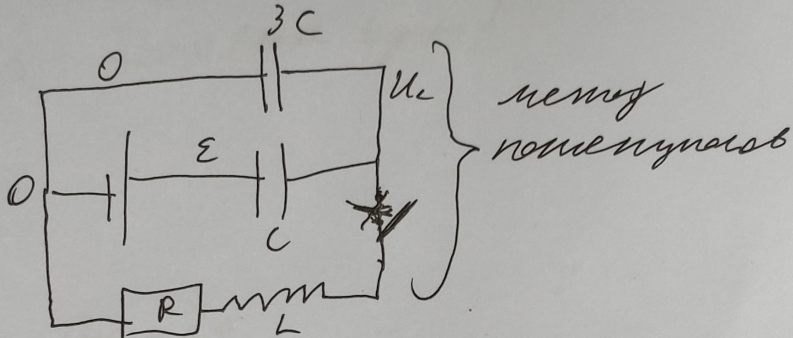 3C
O
U_c
метод
потенциалов
ε
O
C
R
L